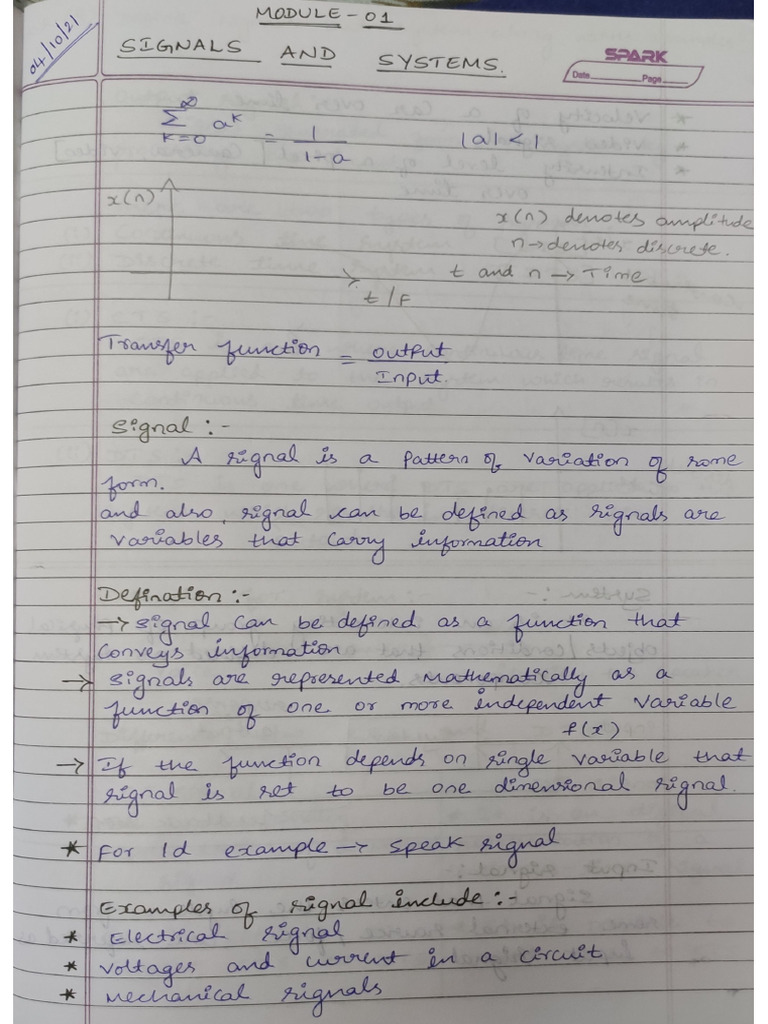 04/10/21
MODULE-01
SIGNALS AND SYSTEMS.
SPARK
Date Page
∞
Σ a^k = 1/(1-a) |a| < 1
k=0
x(n)
x(n) denotes amplitude
n→denotes discrete.
t and n → Time
t/F
Transfer function = output/Input.
Signal :-
A signal is a pattern of variation of some
form.
and also, signal can be defined as signals are
variables that carry information
Defination :-
→ signal can be defined as a function that
conveys information
→ signals are represented Mathematically as a
function of one or more independent variable
f(x)
→ If the function depends on single variable that
signal is set to be one dimensional signal.
* For 1d example → speak signal
Examples of signal include :-
* Electrical signal
* voltages and current in a circuit
* Mechanical signals